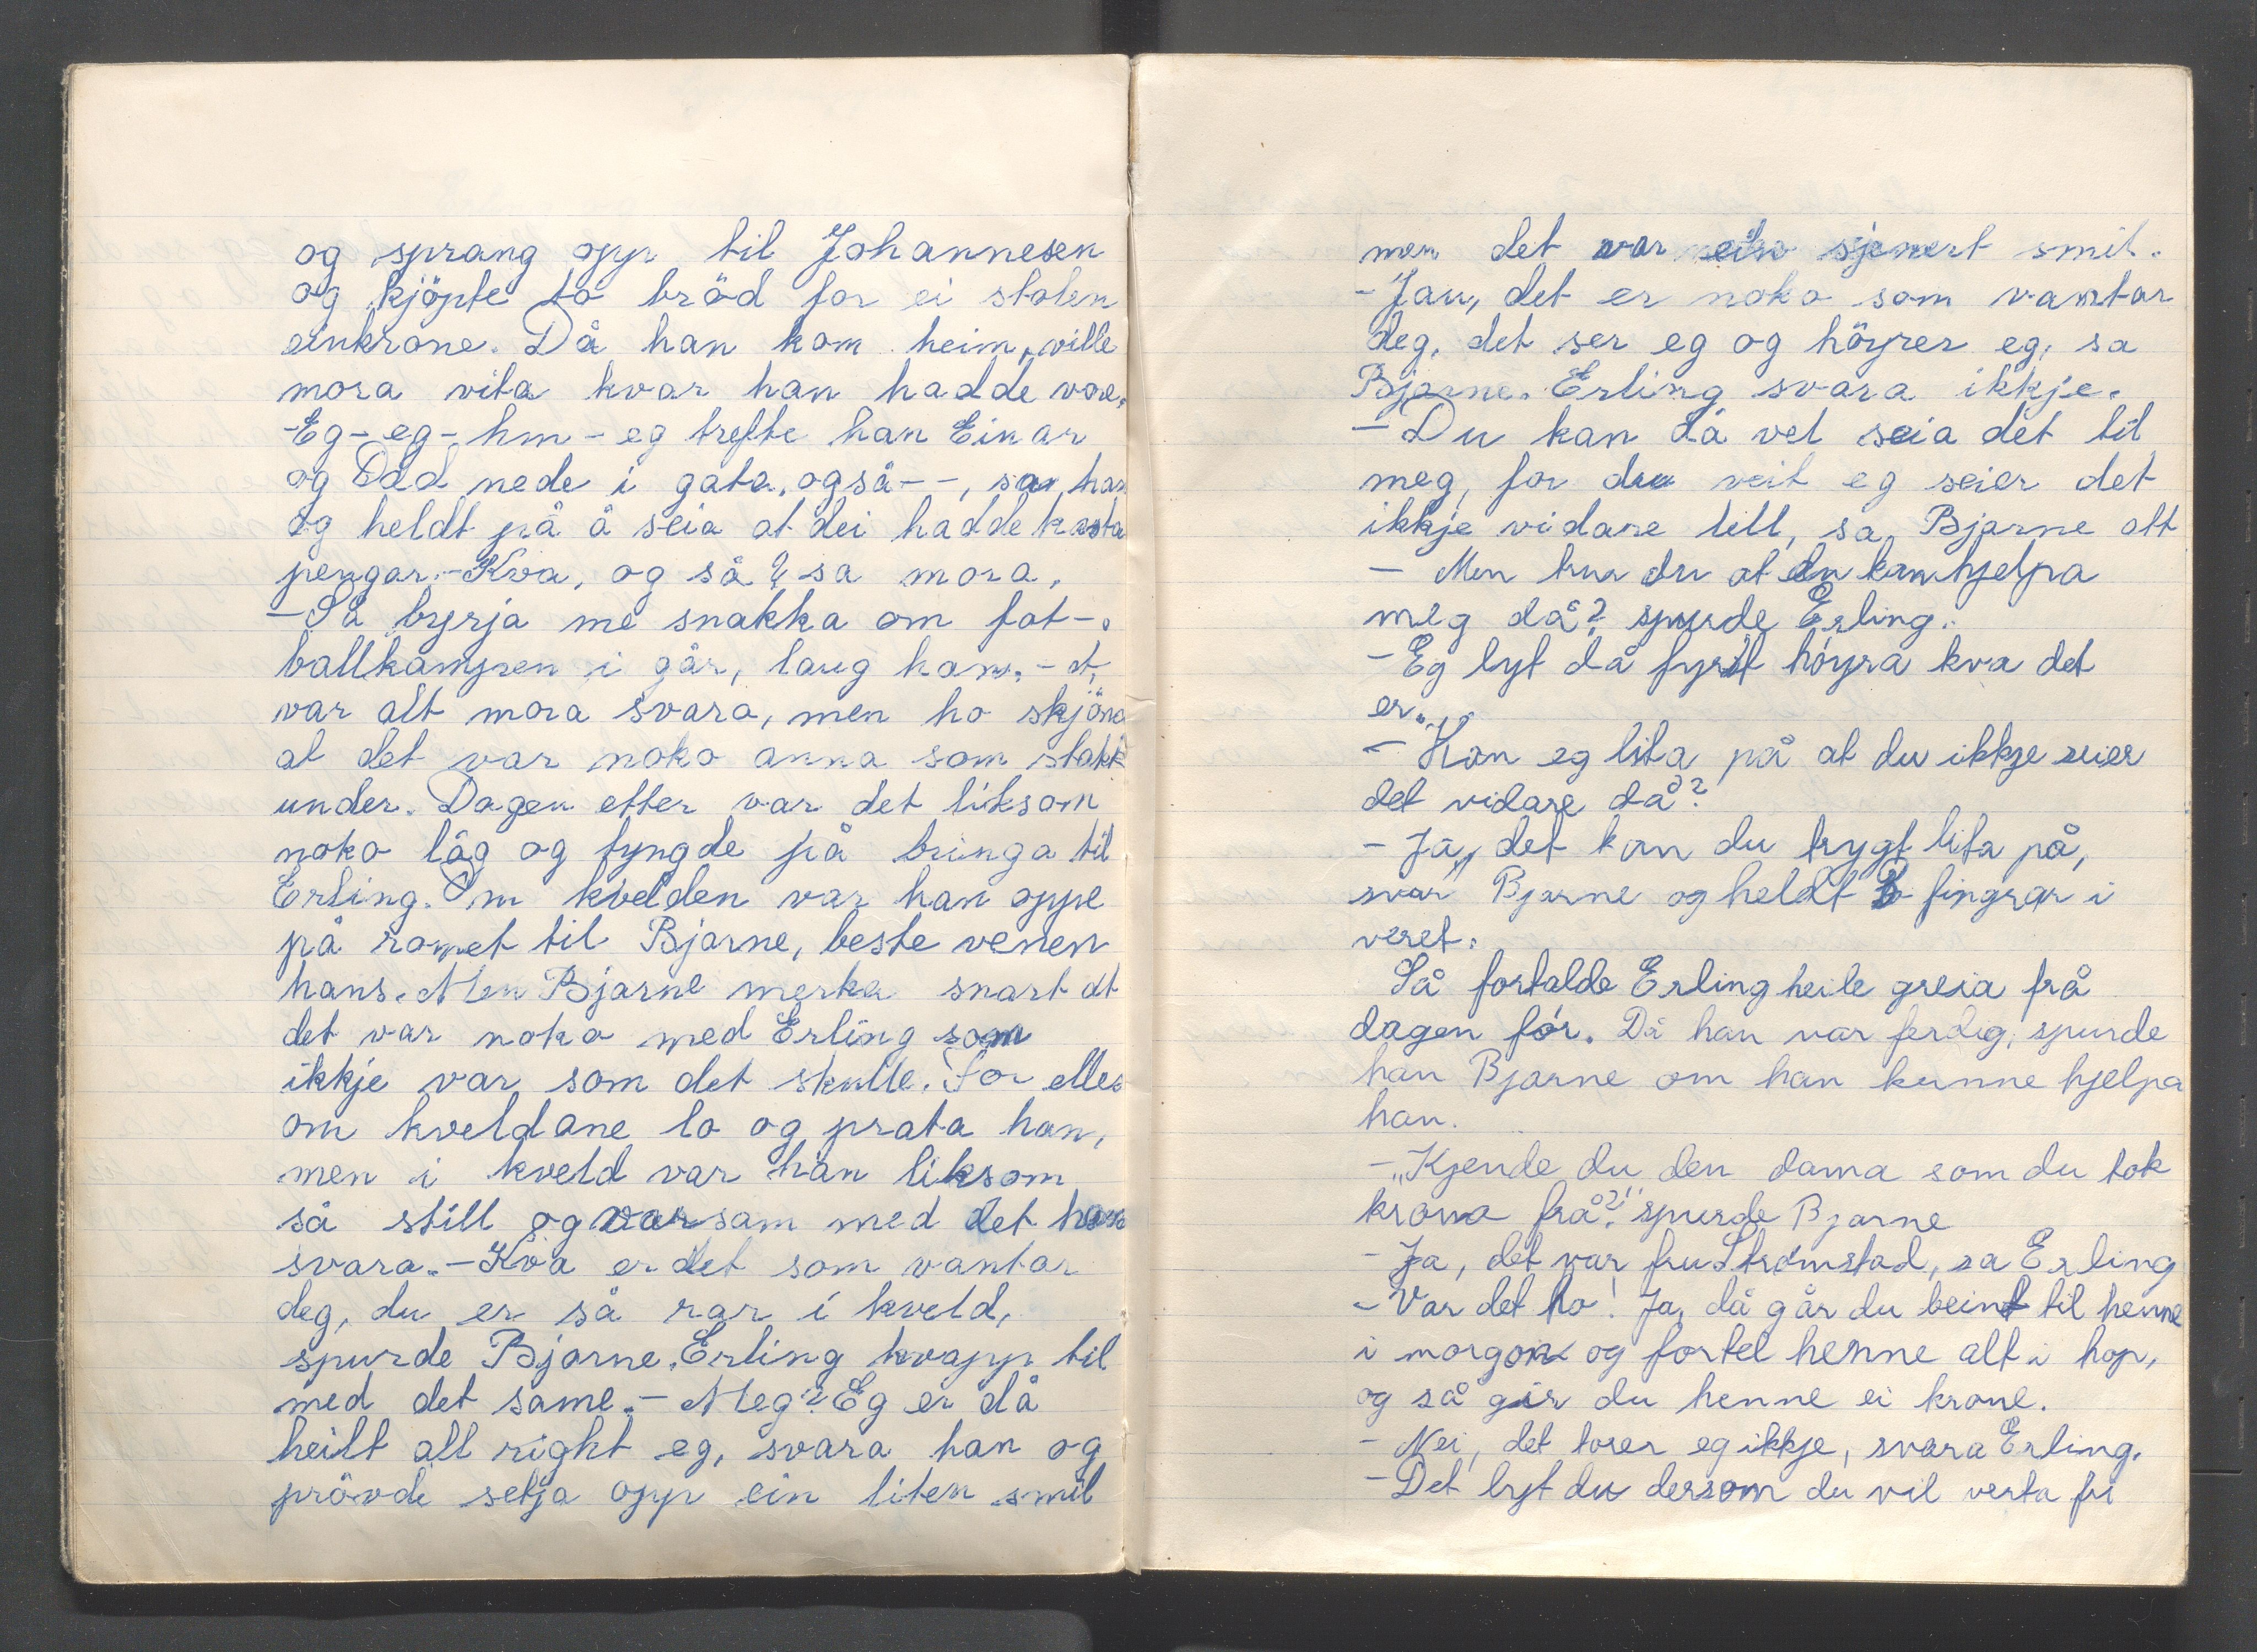 og sprang opp til Johannesen
og kjöpte to bröd for ei stolen
einkrone. Då han kom heim, ville
mora vita kvar han hadde vore.
-Eg - eg - hm - eg trefte han Einar
og Odd nede i gata, også - -, sa han
og heldt på å seia at dei hadde kasta
pengar. - Kva, og så? sa mora.
- Så byrja me snakka om fot-
ballkampen i går, laug han. -
var alt mora svara, men ho skjöna
at det var noko anna som stakk
under. Dagen etter var det liksom
noko låg og tyngde på bringa til
Erling. Om kvelden var han oppe
på romet til Bjarne, beste venen
hans. Men Bjarne merka snart at
det var noko med Erling som
ikkje var som det skulle. For elles
om kveldane lo og prata han,
men i kveld var han liksom
så still og varsam med det han
svara. - Kva er det som vantar
deg, du er så rar i kveld,
spurde Bjarne. Erling kvapp til
med det same. - Meg? Eg er då
heilt all right eg, svara han og
prövde setja opp ein liten smil
men det var ein sjenert smil.
- Jau, det er noko som vantar
deg, det ser eg og höyrer eg, sa
Bjarne. Erling svara ikkje.
- Du kan då vel seia det til
meg, for du veit eg seier det
ikkje vidare lell, sa Bjarne att
- Men trur du at du kan hjelpa
meg då? spurde Erling.
- Eg lyt då fyrst høyra kva det
er.
- Kan eg lita på at du ikkje seier
det vidare då?
- Ja, det kan du trygt lita på,
svar Bjarne og heldt to fingrar i
veret.
Så fortalde Erling heile greia frå
dagen før. Då han var ferdig, spurde
han Bjarne om han kunne hjelpa
han.
- "Kjende du den dama som du tok
krona frå?" spurde Bjarne
- Ja, det var fru Strømstad, sa Erling
- Var det ho! Ja, då går du beint til henne
i morgon og fortel henne alt i hop,
og så gir du henne ei krone.
- Nei, det torer eg ikkje, svara Erling.
- Det lyt du dersom du vil verta fri